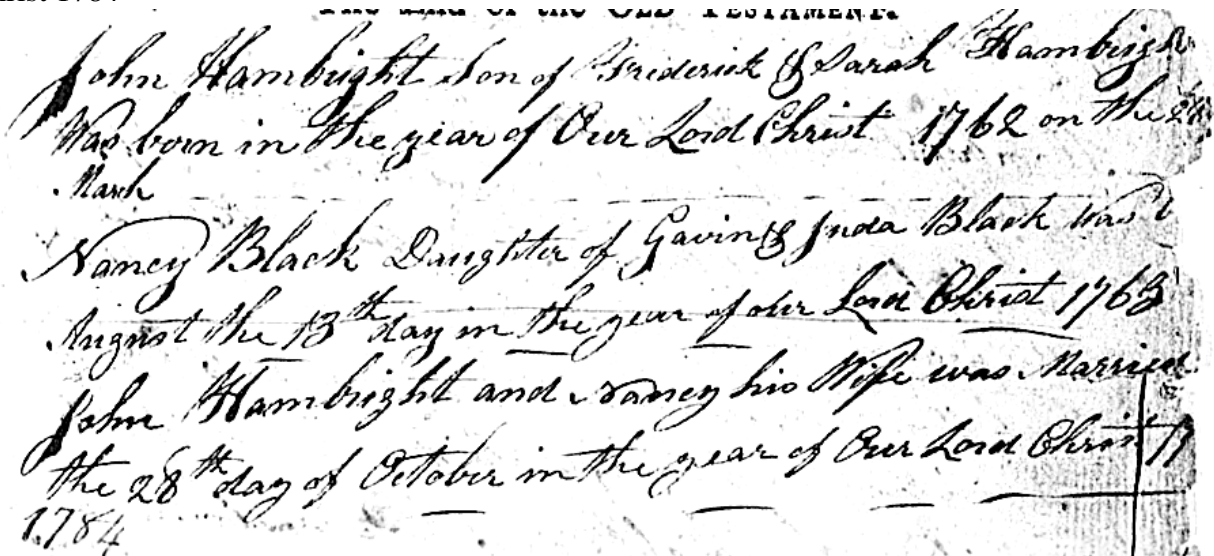 The End of the OLD TESTAMENT.
John Hambright Son of Frederick & Sarah Hambrigh
Was born in the year of Our Lord Christ 1762 on the
March
Nancy Black Daughter of Gavin & Juda Black was
August the 13th day in the year of our Lord Christ 1763
John Hambright and Nancy his Wife was Married
the 28th day of October in the year of Our Lord Christ 17
1784